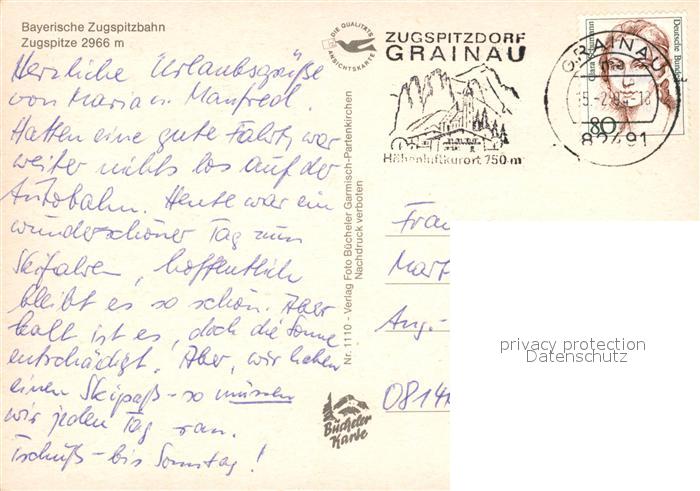 Bayerische Zugspitzbahn
Zugspitze 2966 m
Herzliche Urlaubsgrüße
von Maria u. Manfred.
Hatten eine gute Fahrt, war
weiter nichts los auf der
Autobahn. Heute war ein
wunderschöner Tag zum
Skifahren, hoffentlich
bleibt es so schön. Aber
kalt ist es, doch die Sonne
entschädigt. Aber, wir haben
einen Skipaß - so müssen
wir jeden Tag ran.
Tschüß - bis Sonntag!
Nr. 1110 - Verlag Foto Bücheler Garmisch-Partenkirchen
Nachdruck verboten
DIE QUALITÄTS
ANSICHTSKARTE
ZUGSPITZDORF
GRAINAU
Höhenluftkurort 750 m
GRAINAU
82491
Deutsche Bundes
Clara Schumann
80
Frau
Mart
Ang.-
0814
Bücheler
Karte
privacy protection
Datenschutz